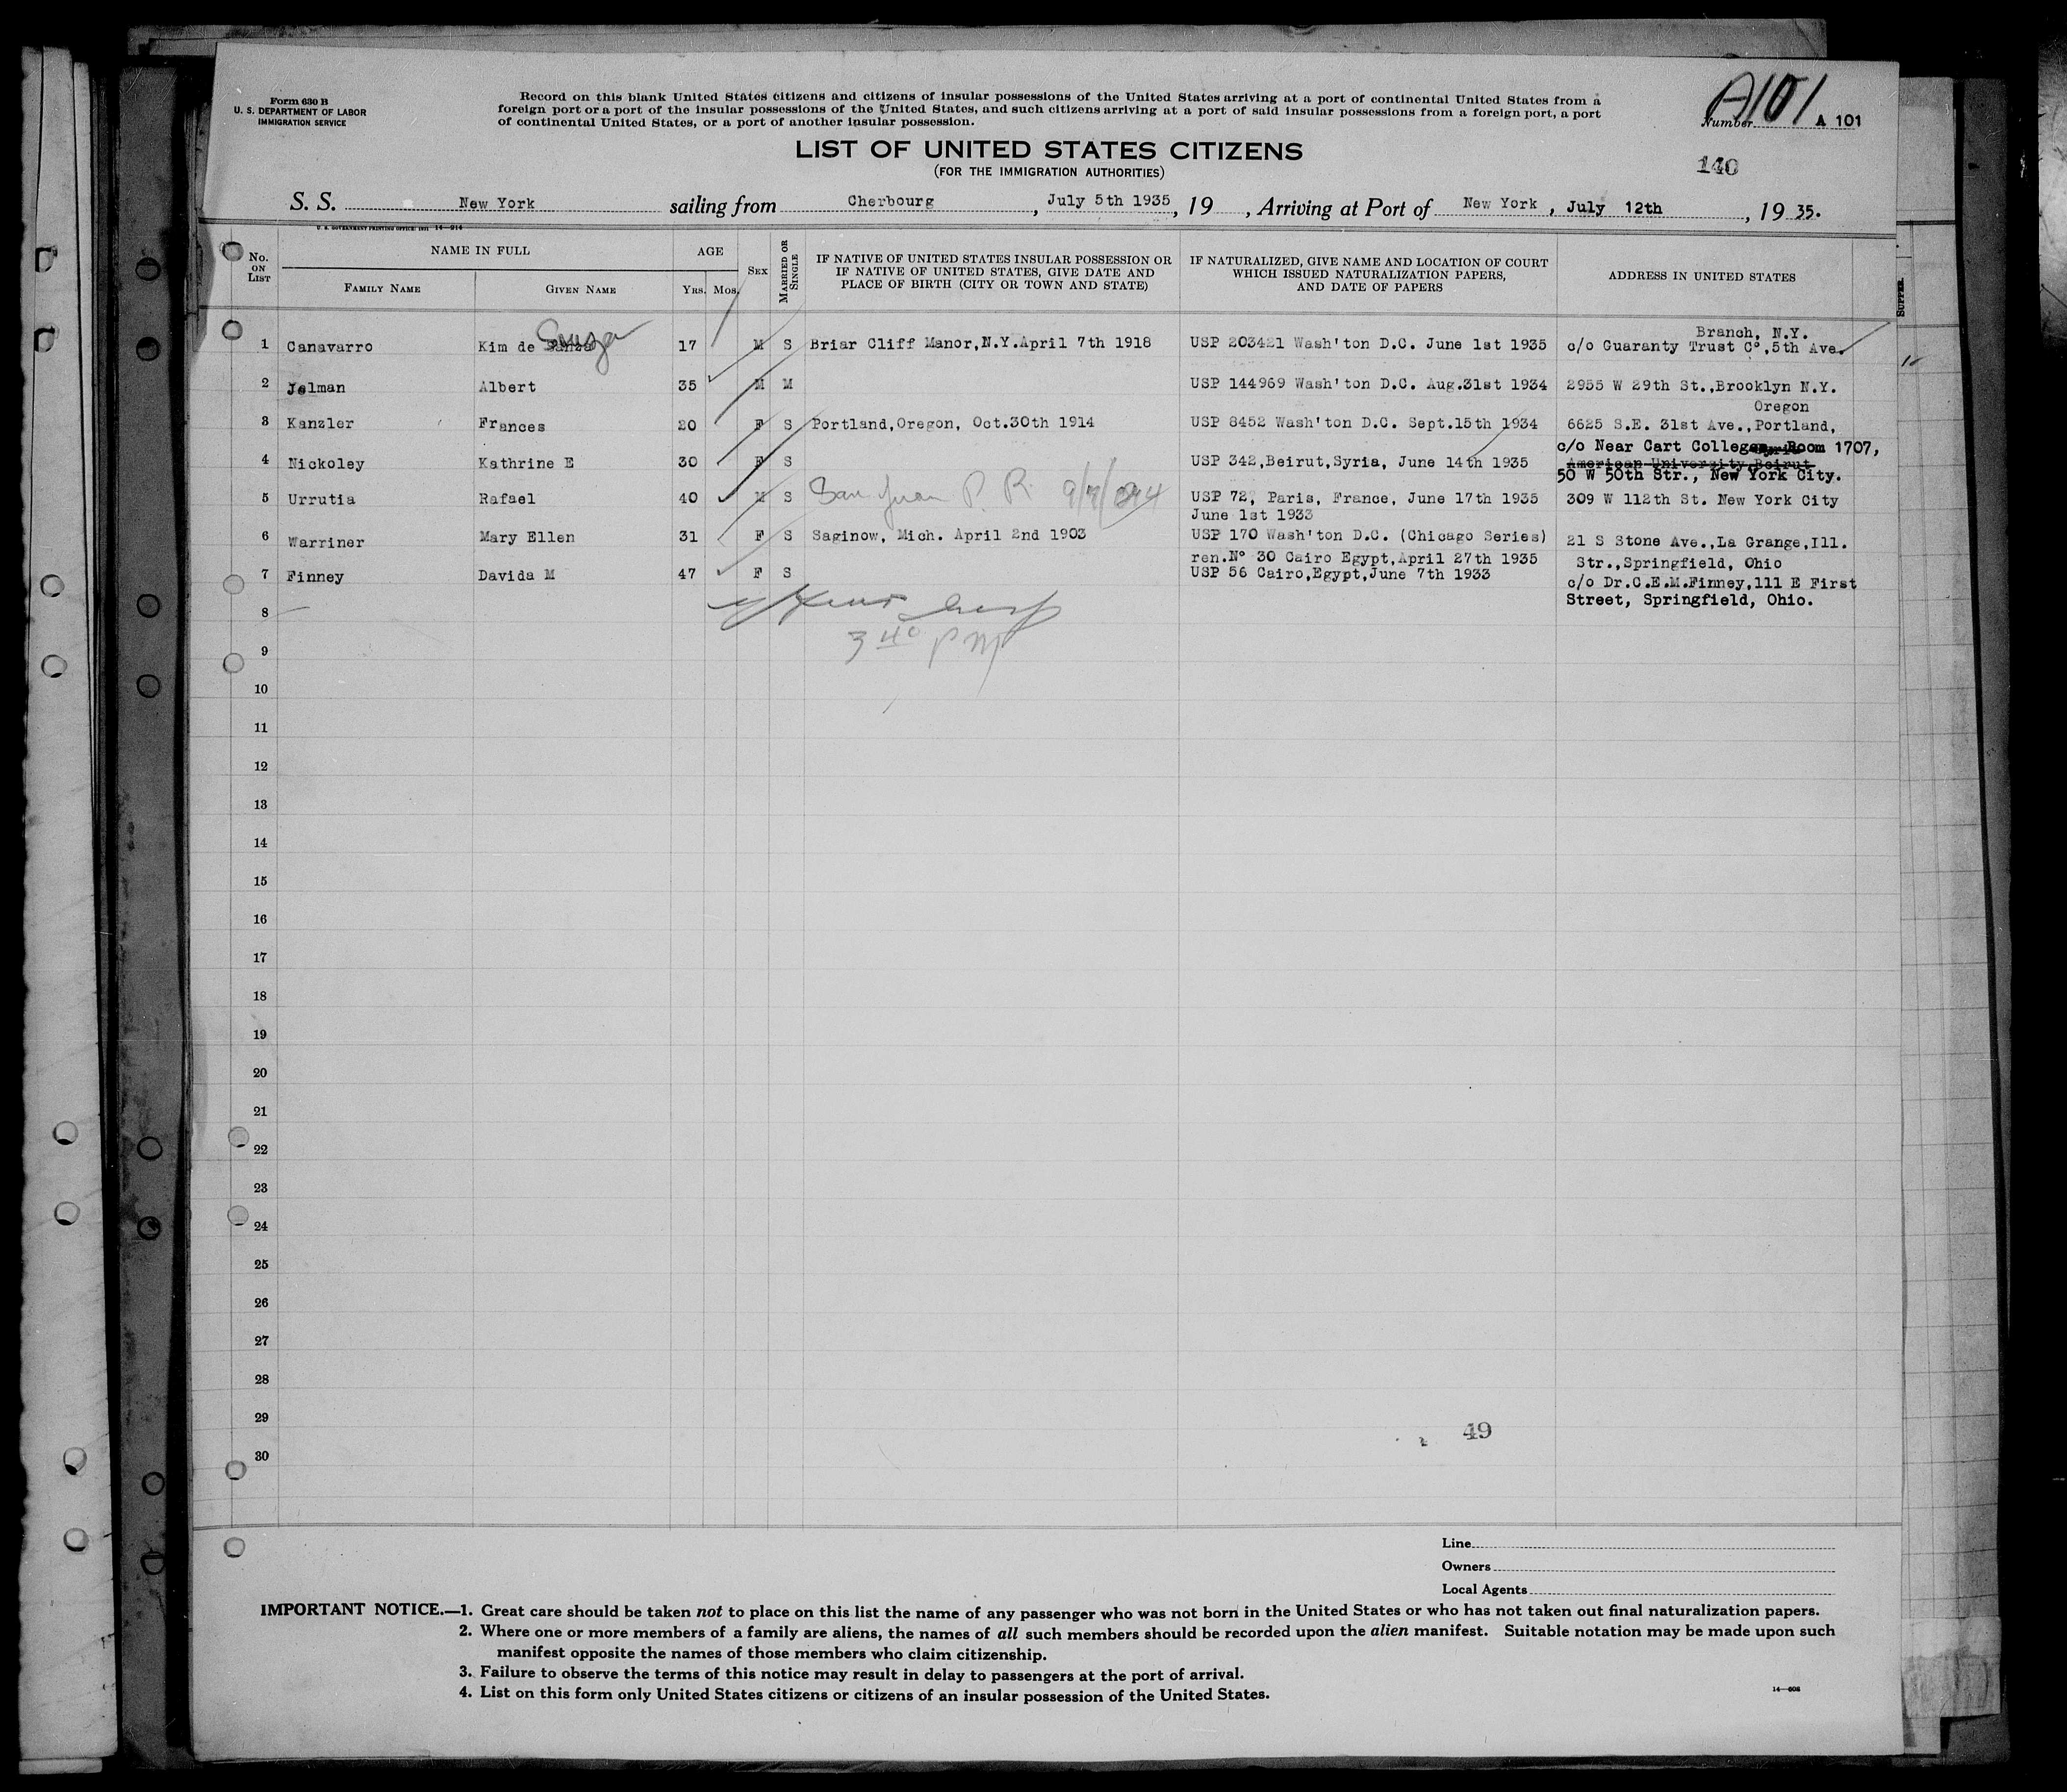 Form 630 B
U. S. DEPARTMENT OF LABOR
IMMIGRATION SERVICE
Record on this blank United States citizens and citizens of insular possessions of the United States arriving at a port of continental United States from a
foreign port or a port of the insular possessions of the United States, and such citizens arriving at a port of said insular possessions from a foreign port, a port
of continental United States, or a port of another insular possession.
A101
Number A 101
LIST OF UNITED STATES CITIZENS
(FOR THE IMMIGRATION AUTHORITIES)
140
S. S. New York sailing from Cherbourg, July 5th 1935, 19 , Arriving at Port of New York, July 12th, 1935.
U. S. GOVERNMENT PRINTING OFFICE: 1931 14—214
No. ON LIST
NAME IN FULL
FAMILY NAME
GIVEN NAME
AGE
YRS. MOS.
SEX
MARRIED OR SINGLE
IF NATIVE OF UNITED STATES INSULAR POSSESSION OR
IF NATIVE OF UNITED STATES, GIVE DATE AND
PLACE OF BIRTH (CITY OR TOWN AND STATE)
IF NATURALIZED, GIVE NAME AND LOCATION OF COURT
WHICH ISSUED NATURALIZATION PAPERS,
AND DATE OF PAPERS
ADDRESS IN UNITED STATES
SUPPER.
Souza
Branch, N.Y.
1 Canavarro Kim de 17 M S Briar Cliff Manor,N.Y.April 7th 1918 USP 203421 Wash'ton D.C. June 1st 1935 c/o Guaranty Trust C°,5th Ave.
2 Jelman Albert 35 M M USP 144969 Wash'ton D.C. Aug.31st 1934 2955 W 29th St.,Brooklyn N.Y.
Oregon
3 Kanzler Frances 20 F S Portland,Oregon, Oct.30th 1914 USP 8452 Wash'ton D.C. Sept.15th 1934 6625 S.E. 31st Ave.,Portland,
c/o Near Cart College, Room 1707,
4 Nickoley Kathrine E 30 F S USP 342,Beirut,Syria, June 14th 1935 American University Beirut
50 W 50th Str., New York City.
5 Urrutia Rafael 40 M S San Juan P. R. USP 72, Paris, France, June 17th 1935 309 W 112th St. New York City
June 1st 1933
6 Warriner Mary Ellen 31 F S Saginow, Mich. April 2nd 1903 USP 170 Wash'ton D.C. (Chicago Series) 21 S Stone Ave.,La Grange,Ill.
ren.N° 30 Cairo Egypt,April 27th 1935 Str.,Springfield, Ohio
7 Finney Davida M 47 F S USP 56 Cairo,Egypt,June 7th 1933 c/o Dr.C.E.M.Finney,111 E First
Street, Springfield, Ohio.
8
3 40 PM
9
10
11
12
13
14
15
16
17
18
19
20
21
22
23
24
25
26
27
28
29
49
30
Line
Owners
Local Agents
IMPORTANT NOTICE.—1. Great care should be taken not to place on this list the name of any passenger who was not born in the United States or who has not taken out final naturalization papers.
2. Where one or more members of a family are aliens, the names of all such members should be recorded upon the alien manifest. Suitable notation may be made upon such
manifest opposite the names of those members who claim citizenship.
3. Failure to observe the terms of this notice may result in delay to passengers at the port of arrival.
4. List on this form only United States citizens or citizens of an insular possession of the United States.
14—608